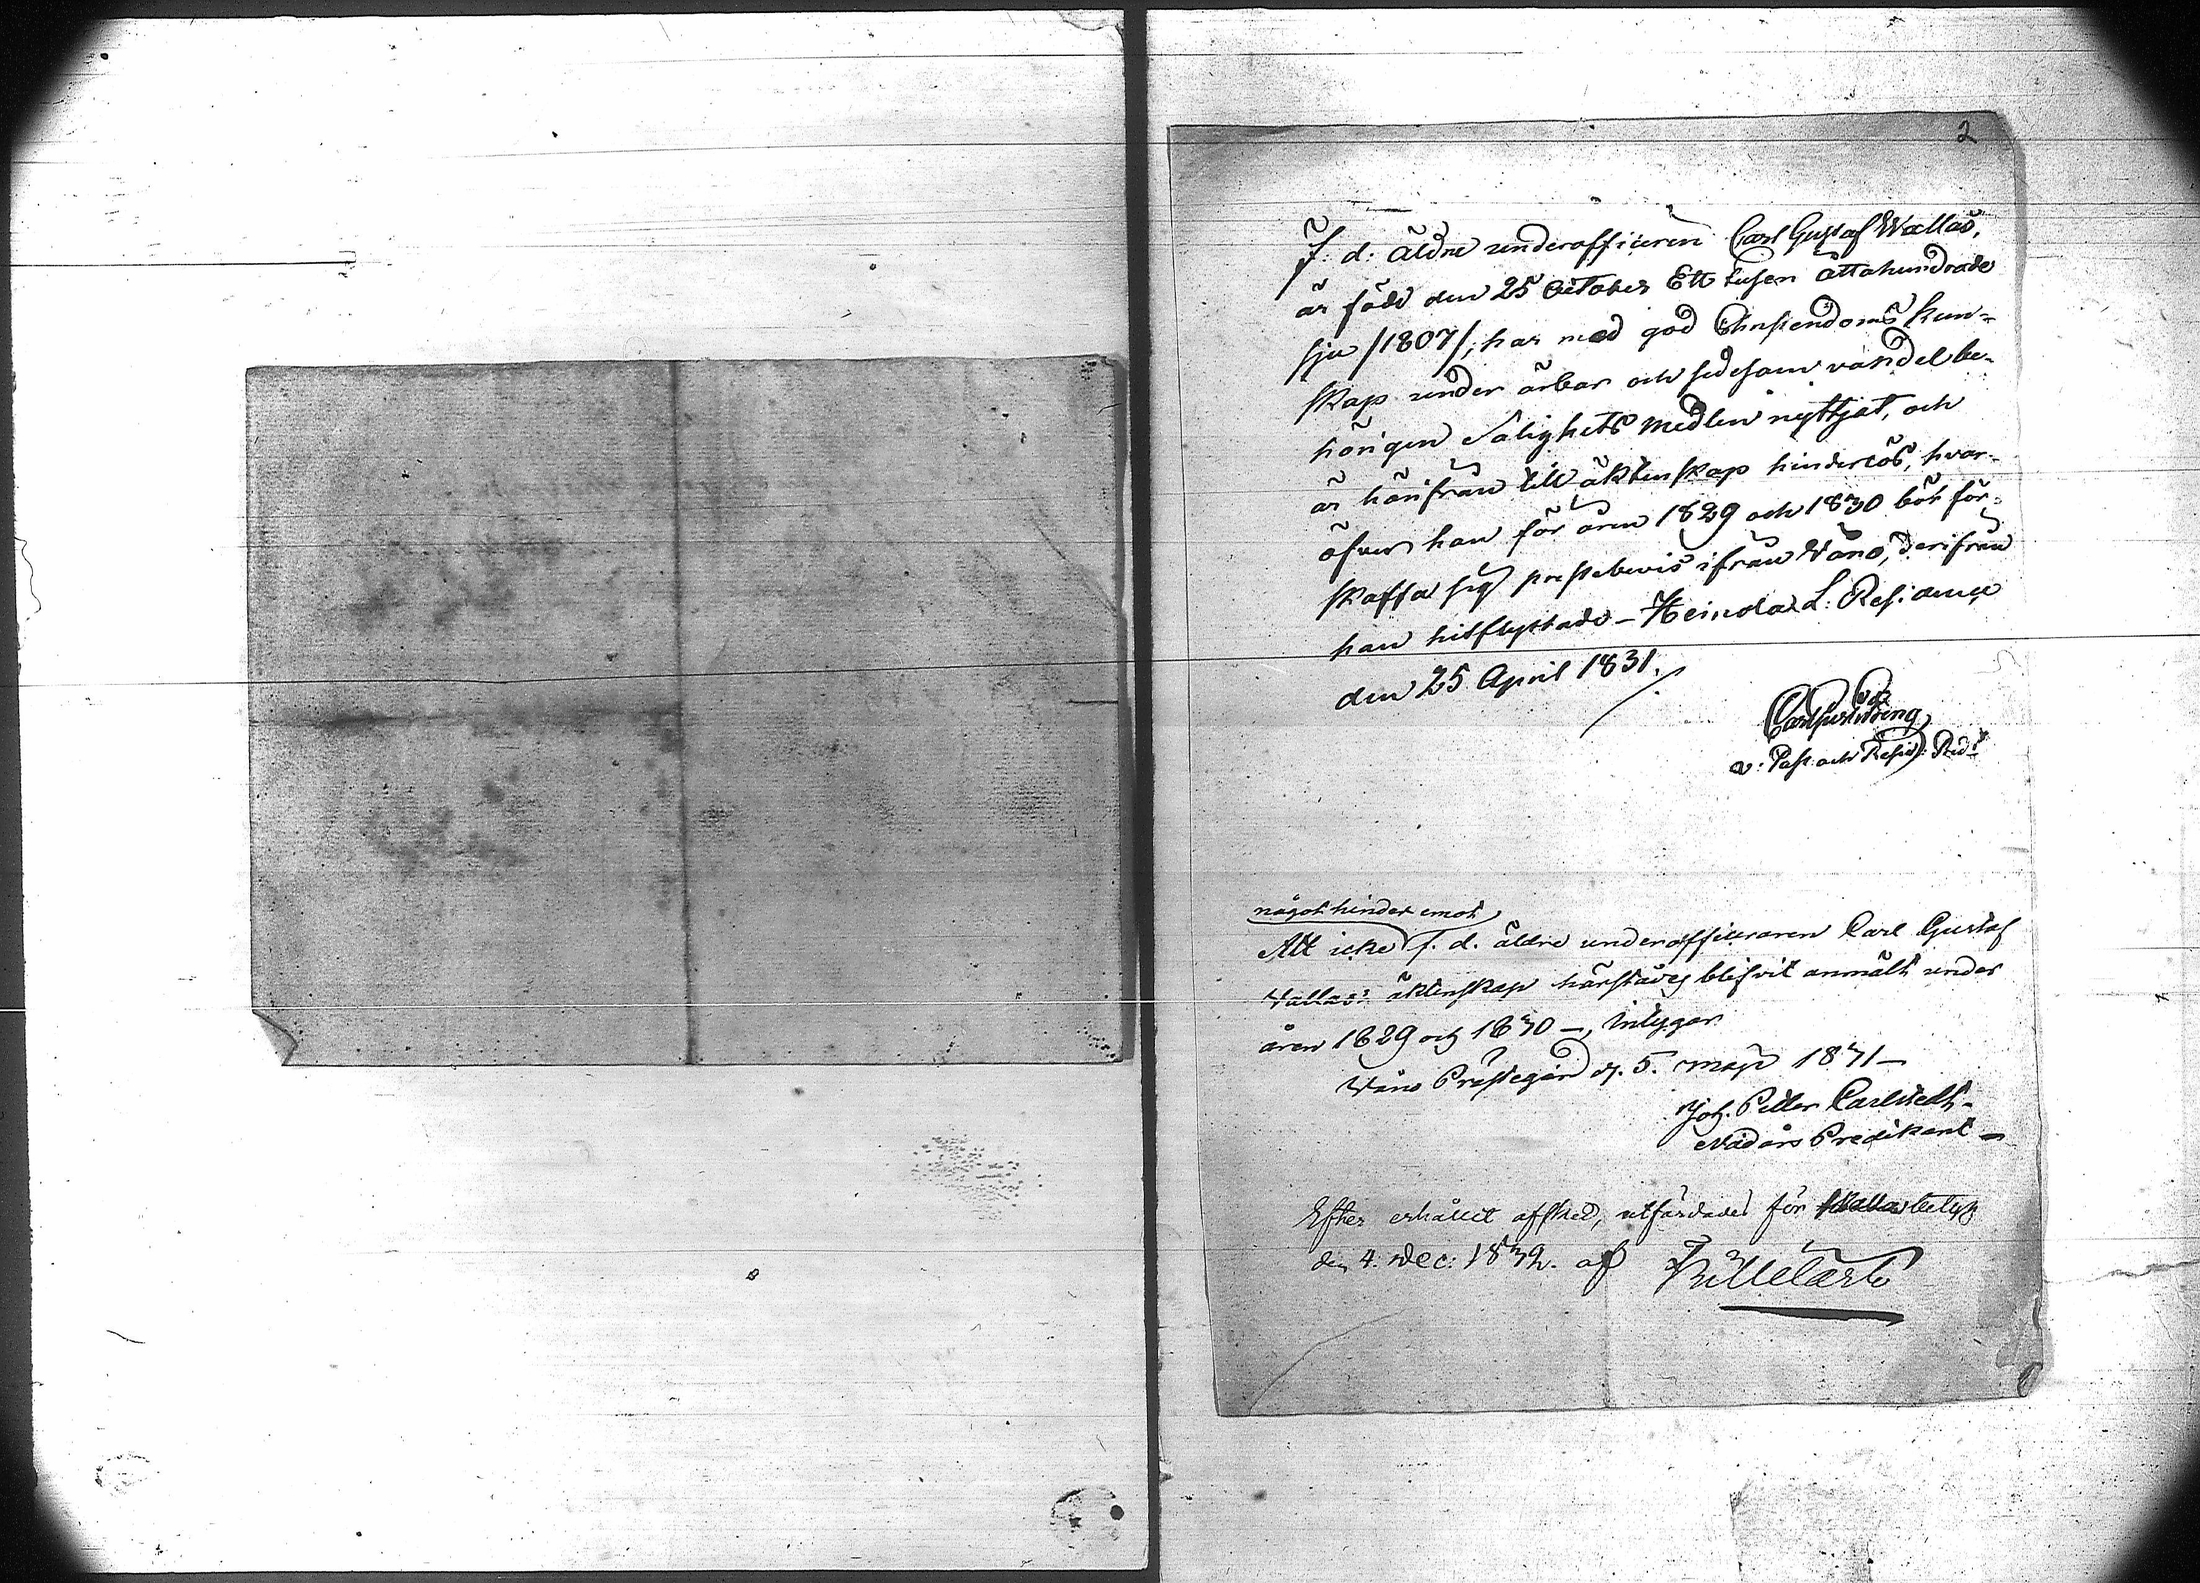 2
F. d. äldre underofficeren Carl Gustaf Wallas,
är född den 25 October Ett tusen åttahundrade
sju /1807/, har med god Christendoms kun-
skap under ärbar och sedesam vandel be-
hörigen Salighets medlen nyttjat, och
är härifrån till äktenskap hinderlös, hvar-
öfver han för åren 1829 och 1830 bör för-
skaffa sig prestebevis ifrån Wånå, derifrån
han hitflyttade – Heinola L: Residence
den 25 April 1831.
v: Past och Resid: Pred:t
något hinder emot
Att icke f. d. äldre underofficeraren Carl Gustaf
Vallas's äktenskap härstädes blifvit anmält under
åren 1829 och 1830 –, intygar
Wånå Prästegård d. 5. maji 1831 –
Joh. Petter Carlstedt –
Nådårs Predikant –
Efter erhållit afsked, utfärdades för Wallas betyg
den 4. Dec: 1832. af